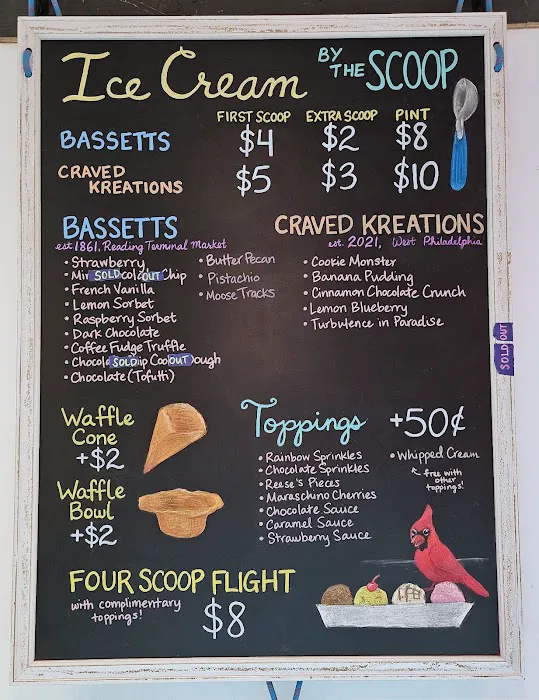 Ice Cream BY THE SCOOP
FIRST SCOOP EXTRA SCOOP PINT
BASSETTS $4 $2 $8
CRAVED KREATIONS $5 $3 $10
BASSETTS
est 1861, Reading Terminal Market
• Strawberry
• Min SOLD ocol OUT Chip
• French Vanilla
• Lemon Sorbet
• Raspberry Sorbet
• Dark Chocolate
• Coffee Fudge Truffle
• Chocola SOLD ip Coo OUT Dough
• Chocolate (Tofutti)
• Butter Pecan
• Pistachio
• Moose Tracks
CRAVED KREATIONS
est. 2021, West Philadelphia
• Cookie Monster
• Banana Pudding
• Cinnamon Chocolate Crunch
• Lemon Blueberry
• Turbulence in Paradise
SOLD OUT
Waffle
Cone
+$2
Waffle
Bowl
+$2
Toppings +50¢
• Rainbow Sprinkles
• Chocolate Sprinkles
• Reese's Pieces
• Maraschino Cherries
• Chocolate Sauce
• Caramel Sauce
• Strawberry Sauce
• Whipped Cream
free with
other
toppings!
FOUR SCOOP FLIGHT
with complimentary
toppings!
$8